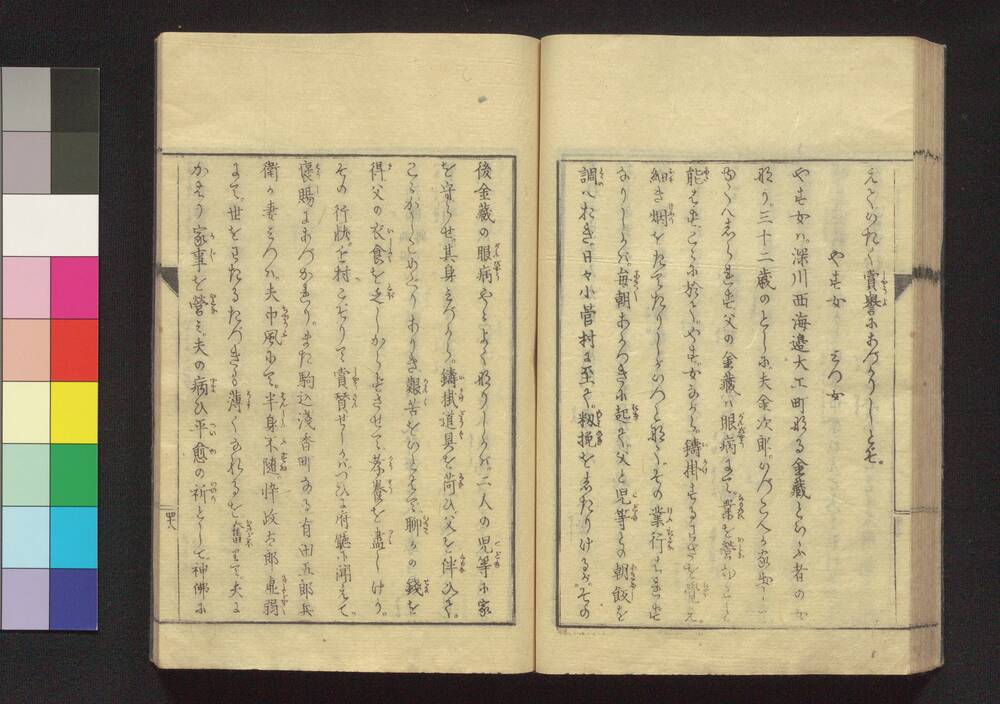 えとく、いたく賞譽にあづかりしとぞ。
やす女 みつ女
やす女ハ、深川西海邊大工町なる金藏といふ者の女
なり。三十二歳のとし、夫金次郎
父の金藏ハ眼病にて、業を營
能はず、こゝに於て、やす女みづから、鑄掛するわざを覺え、
細き烟をたてたりしが、その業行はれず
なりしかバ、毎朝あかつきに起て、父と児等との朝飯を
調へおき、日々小菅村に至て、籾挽をしたりけるが、その
後金藏の眼病やゝよくなりしかバ、二人の児等に家
を守らせ、其身みづから、鑄掛道具を荷ひ、父を伴ひて、
こゝかしこめぐりありき、艱苦をいとはで、聊かの錢を
得、父の衣食を乏しからずさせて、孝養を盡しけり。
その行状を村こぞりて賞賛せしかバ、つひに府廳に聞えて、
褒賜にあづかれり。また駒込淺香町なる有田五郎兵
衛の妻みつハ、夫中風にて、半身不随、忰政太郎ハ虚弱
にて、世をわたるたづきも薄くなれるを、奮ひて、夫に
かはり家事を營み、夫の病ひ平愈の祈として、神佛に
四十八